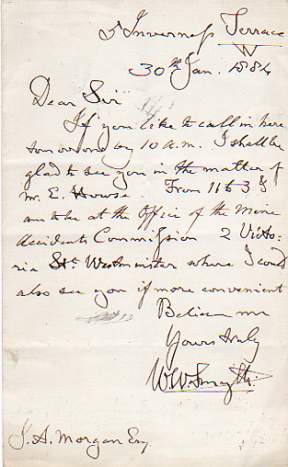 5 Inverness Terrace
W
30th Jan. 1884
Dear Sir
If you like to call in here
tomorrow by 10 a.m. I shall be
glad to see you in the matter of
Mr. E. Howse. From 11 to 3 I
am to be at the Office of the Mine
Accidents Commission 2 Victo-
ria St. Westminster where I could
also see you if more convenient
Believe me
Yours truly
W W Smyth
J. A. Morgan Esq